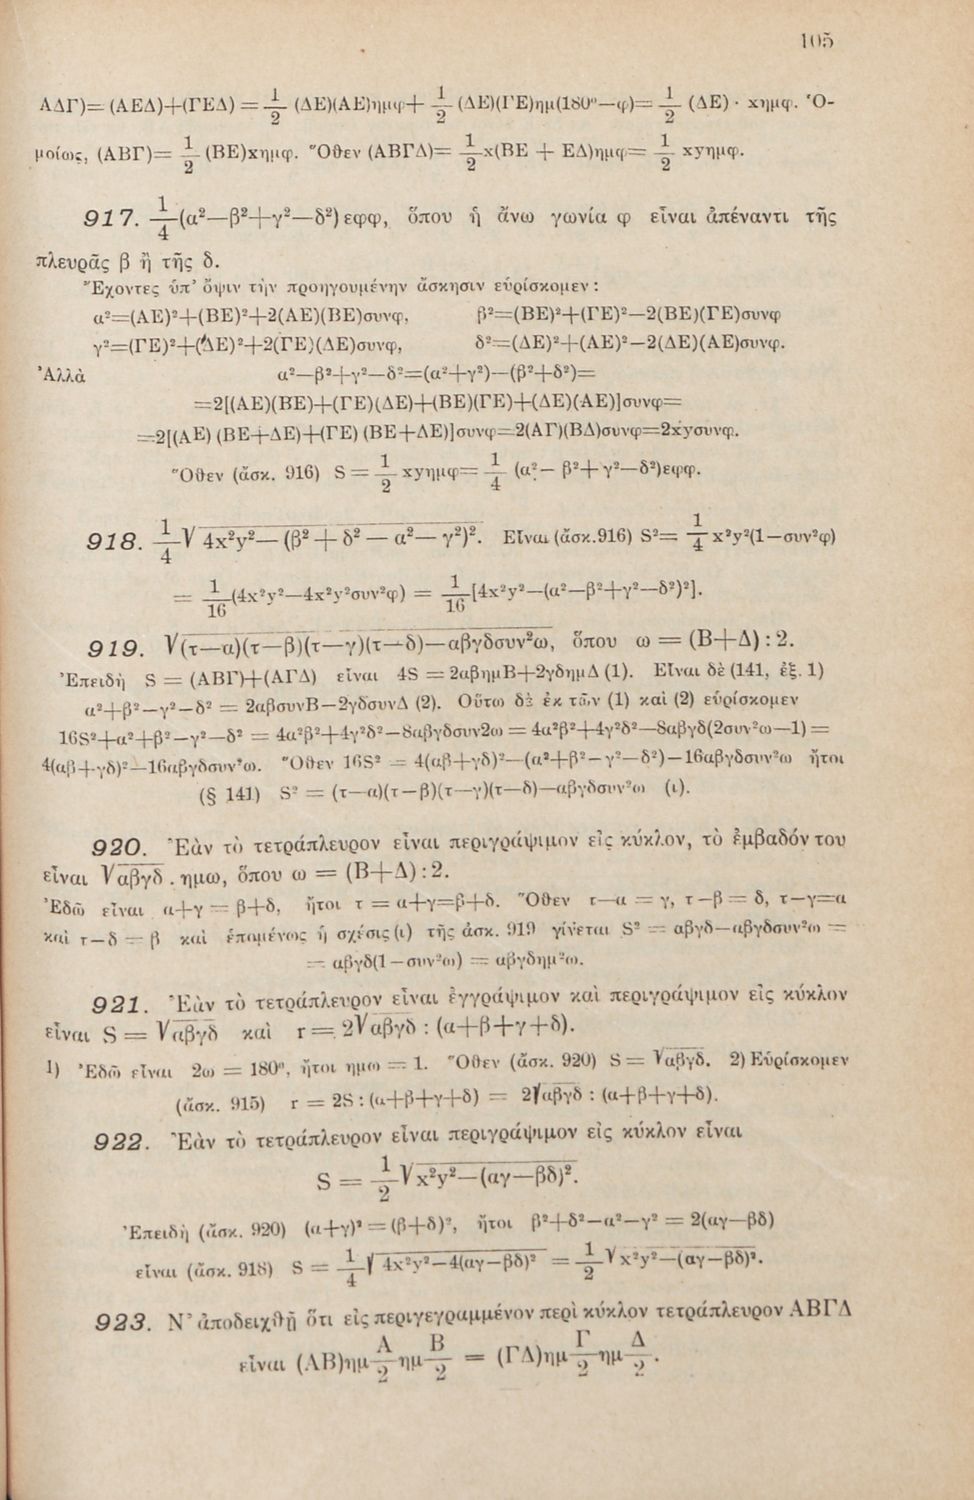 105
ΑΔΓ)= (ΑΕΔ)+(ΓΕΔ) = 1/2 (ΔΕ)(ΑΕ)ημφ+ 1/2 (ΔΕ)(ΓΕ)ημ(180°—φ)= 1/2 (ΔΕ) · xημφ. Ὁ-
μοίως, (ΑΒΓ)= 1/2 (ΒΕ)xημφ. Ὅθεν (ΑΒΓΔ)= 1/2 x(ΒΕ + ΕΔ)ημφ= 1/2 xyημφ.
917. 1/4 (α²—β²+γ²—δ²) εφφ, ὅπου ἡ ἄνω γωνία φ εἶναι ἀπέναντι τῆς
πλευρᾶς β ἢ τῆς δ.
Ἔχοντες ὑπ' ὄψιν τὴν προηγουμένην ἄσκησιν εὑρίσκομεν:
α²=(ΑΕ)²+(ΒΕ)²+2(ΑΕ)(ΒΕ)συνφ, β²=(ΒΕ)²+(ΓΕ)²—2(ΒΕ)(ΓΕ)συνφ
γ²=(ΓΕ)²+(ΔΕ)²+2(ΓΕ)(ΔΕ)συνφ, δ²=(ΔΕ)²+(ΑΕ)²—2(ΔΕ)(ΑΕ)συνφ.
Ἀλλὰ α²—β²+γ²—δ²=(α²+γ²)—(β²+δ²)=
=2[(ΑΕ)(ΒΕ)+(ΓΕ)(ΔΕ)+(ΒΕ)(ΓΕ)+(ΔΕ)(ΑΕ)]συνφ=
=2[(ΑΕ) (ΒΕ+ΔΕ)+(ΓΕ) (ΒΕ+ΔΕ)]συνφ=2(ΑΓ)(ΒΔ)συνφ=2xyσυνφ.
Ὅθεν (ἄσκ. 916) S = 1/2 xyημφ= 1/4 (α²— β²+γ²—δ²)εφφ.
918. 1/4 √4x²y²— (β² + δ² — α²— γ²)². Εἶναι (ἄσκ.916) S²= 1/4 x²y²(1—συν²φ)
= 1/16 (4x²y²—4x²y²συν²φ) = 1/16 [4x²y²—(α²—β²+γ²—δ²)²].
919. √(τ—α)(τ—β)(τ—γ)(τ—δ)—αβγδσυν²ω, ὅπου ω = (Β+Δ) : 2.
Ἐπειδὴ S = (ΑΒΓ)+(ΑΓΔ) εἶναι 4S = 2αβημΒ+2γδημΔ (1). Εἶναι δὲ (141, ἐξ. 1)
α²+β²—γ²—δ² = 2αβσυνΒ—2γδσυνΔ (2). Οὕτω δὲ ἐκ τῶν (1) καὶ (2) εὑρίσκομεν
16S²+α²+β²—γ²—δ² = 4α²β²+4γ²δ²—8αβγδσυν2ω = 4α²β²+4γ²δ²—8αβγδ(2συν²ω—1) =
4(αβ+γδ)²—16αβγδσυν²ω. Ὅθεν 16S² = 4(αβ+γδ)²—(α²+β²—γ²—δ²)—16αβγδσυν²ω ἤτοι
(§ 141) S² = (τ—α)(τ—β)(τ—γ)(τ—δ)—αβγδσυν²ω (ι).
920. Ἐὰν τὸ τετράπλευρον εἶναι περιγράψιμον εἰς κύκλον, τὸ ἐμβαδόν του
εἶναι √αβγδ . ημω, ὅπου ω = (Β+Δ) : 2.
Ἐδῶ εἶναι α+γ = β+δ, ἤτοι τ = α+γ=β+δ. Ὅθεν τ—α = γ, τ—β = δ, τ—γ=α
καὶ τ—δ = β καὶ ἑπομένως ἡ σχέσις (ι) τῆς ἀσκ. 919 γίνεται S² = αβγδ—αβγδσυν²ω =
= αβγδ(1—συν²ω) = αβγδημ²ω.
921. Ἐὰν τὸ τετράπλευρον εἶναι ἐγγράψιμον καὶ περιγράψιμον εἰς κύκλον
εἶναι S = √αβγδ καὶ r = 2√αβγδ : (α+β+γ+δ).
1) Ἐδῶ εἶναι 2ω = 180°, ἤτοι ημω = 1. Ὅθεν (ἄσκ. 920) S = √αβγδ. 2) Εὑρίσκομεν
(ἄσκ. 915) r = 2S : (α+β+γ+δ) = 2√αβγδ : (α+β+γ+δ).
922. Ἐὰν τὸ τετράπλευρον εἶναι περιγράψιμον εἰς κύκλον εἶναι
S = 1/2 √x²y²—(αγ—βδ)².
Ἐπειδὴ (ἄσκ. 920) (α+γ)² = (β+δ)², ἤτοι β²+δ²—α²—γ² = 2(αγ—βδ)
εἶναι (ἄσκ. 918) S = 1/4 √4x²y²—4(αγ—βδ)² = 1/2 √x²y²—(αγ—βδ)².
923. Ν' ἀποδειχθῇ ὅτι εἰς περιγεγραμμένον περὶ κύκλον τετράπλευρον ΑΒΓΔ
εἶναι (ΑΒ)ημ Α/2 ημ Β/2 = (ΓΔ)ημ Γ/2 ημ Δ/2 .